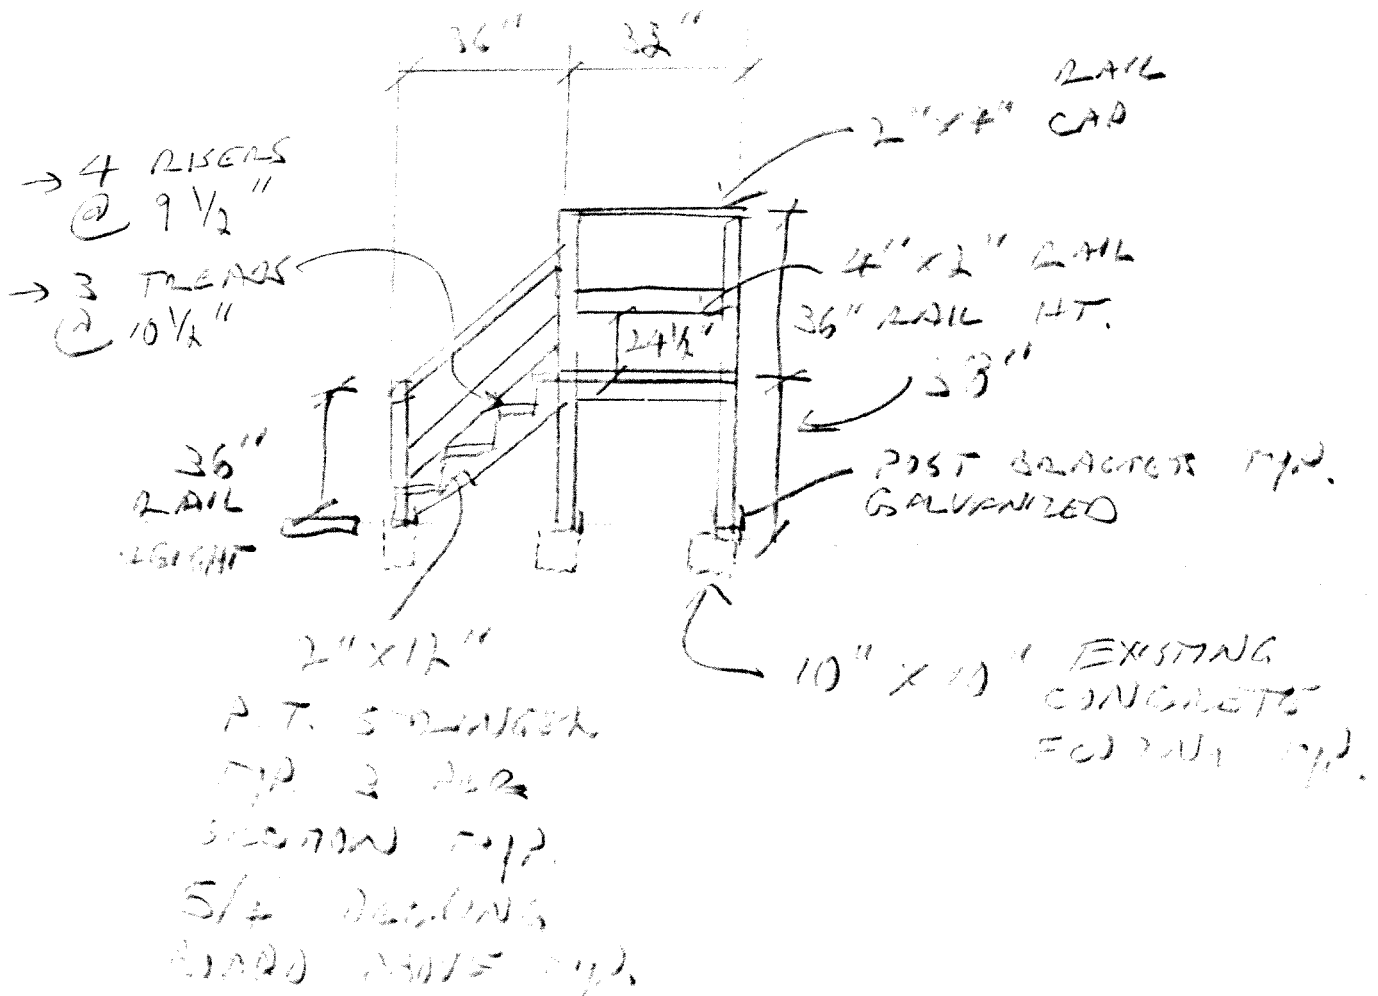 36"
33"
RAIL
2"x4" CAP
→ 4 RISERS
@ 9 1/2"
→ 3 TREADS
@ 10 1/2"
4"x2" RAIL
36" RAIL HT.
24 1/2"
38"
36"
RAIL
HEIGHT
POST BRACKETS TYP.
GALVANIZED
2"x12"
P.T. STRINGER
TYP. 3 PER
SECTION TYP.
5/4 DECKING
BOARD ABOVE TYP.
10" x 10" EXISTING
CONCRETE
FOOTING TYP.